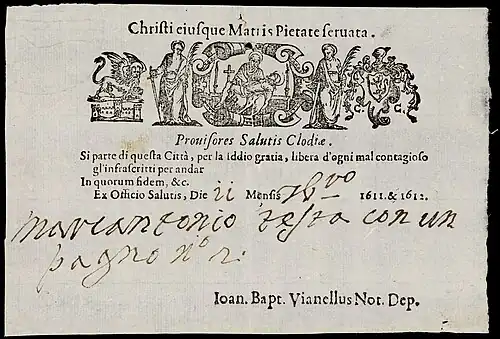 Christi eiusque Matris Pietate seruata.
C. G.
Prouisores Salutis Clodiæ.
Si parte di questa Città, per la Iddio gratia, libera d'ogni mal contagioso
gl'infrascritti per andar
In quorum fidem, &c.
Ex Officio Salutis, Die ii Mensis Xbro 1611. & 1612.
Marcantonio testa con un
pagno n.o 2:
Ioan. Bapt. Vianellus Not. Dep.